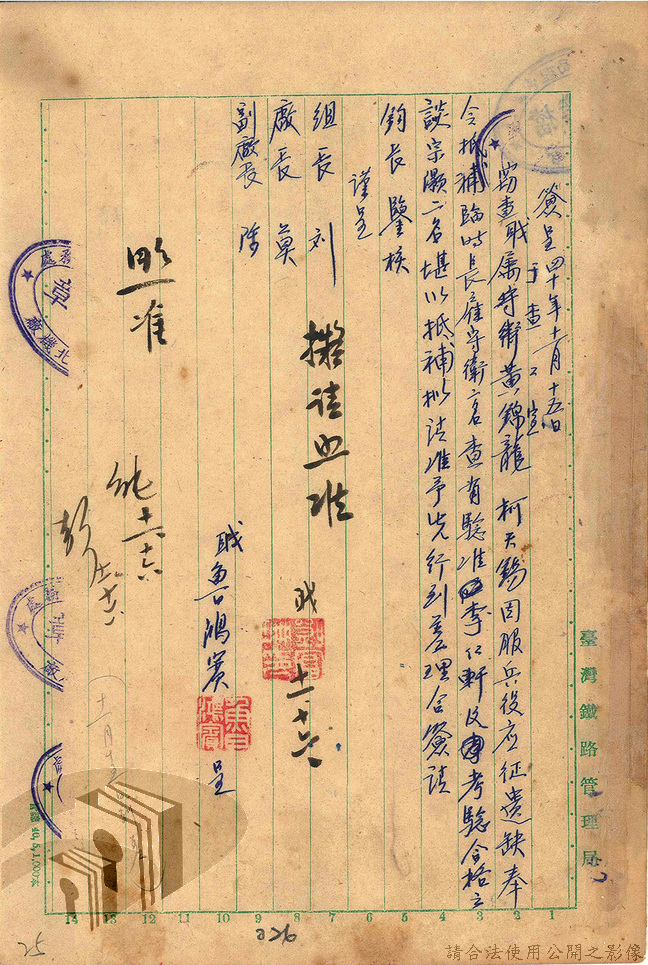 臺灣鐵路管理局
簽呈 四十年十一月十五日
于查口室
竊查職属守衛黃錦龍 柯天錫因服兵役应征遺缺奉
令抵補臨時長雇守衛二名查有驗准李仁軒及考驗合格之
談宗灝二名堪以抵補拟請准予先行到差理合簽請
鈞長鑒核
謹呈
組長 刘
廠長 莫
副廠長 陈
職魯鴻賓 呈
擬請照准
十一、十六
照准
十一、十六
14 13 12 11 10 9 8 7 6 5 4 3 2 1
25
請合法使用公開之影像